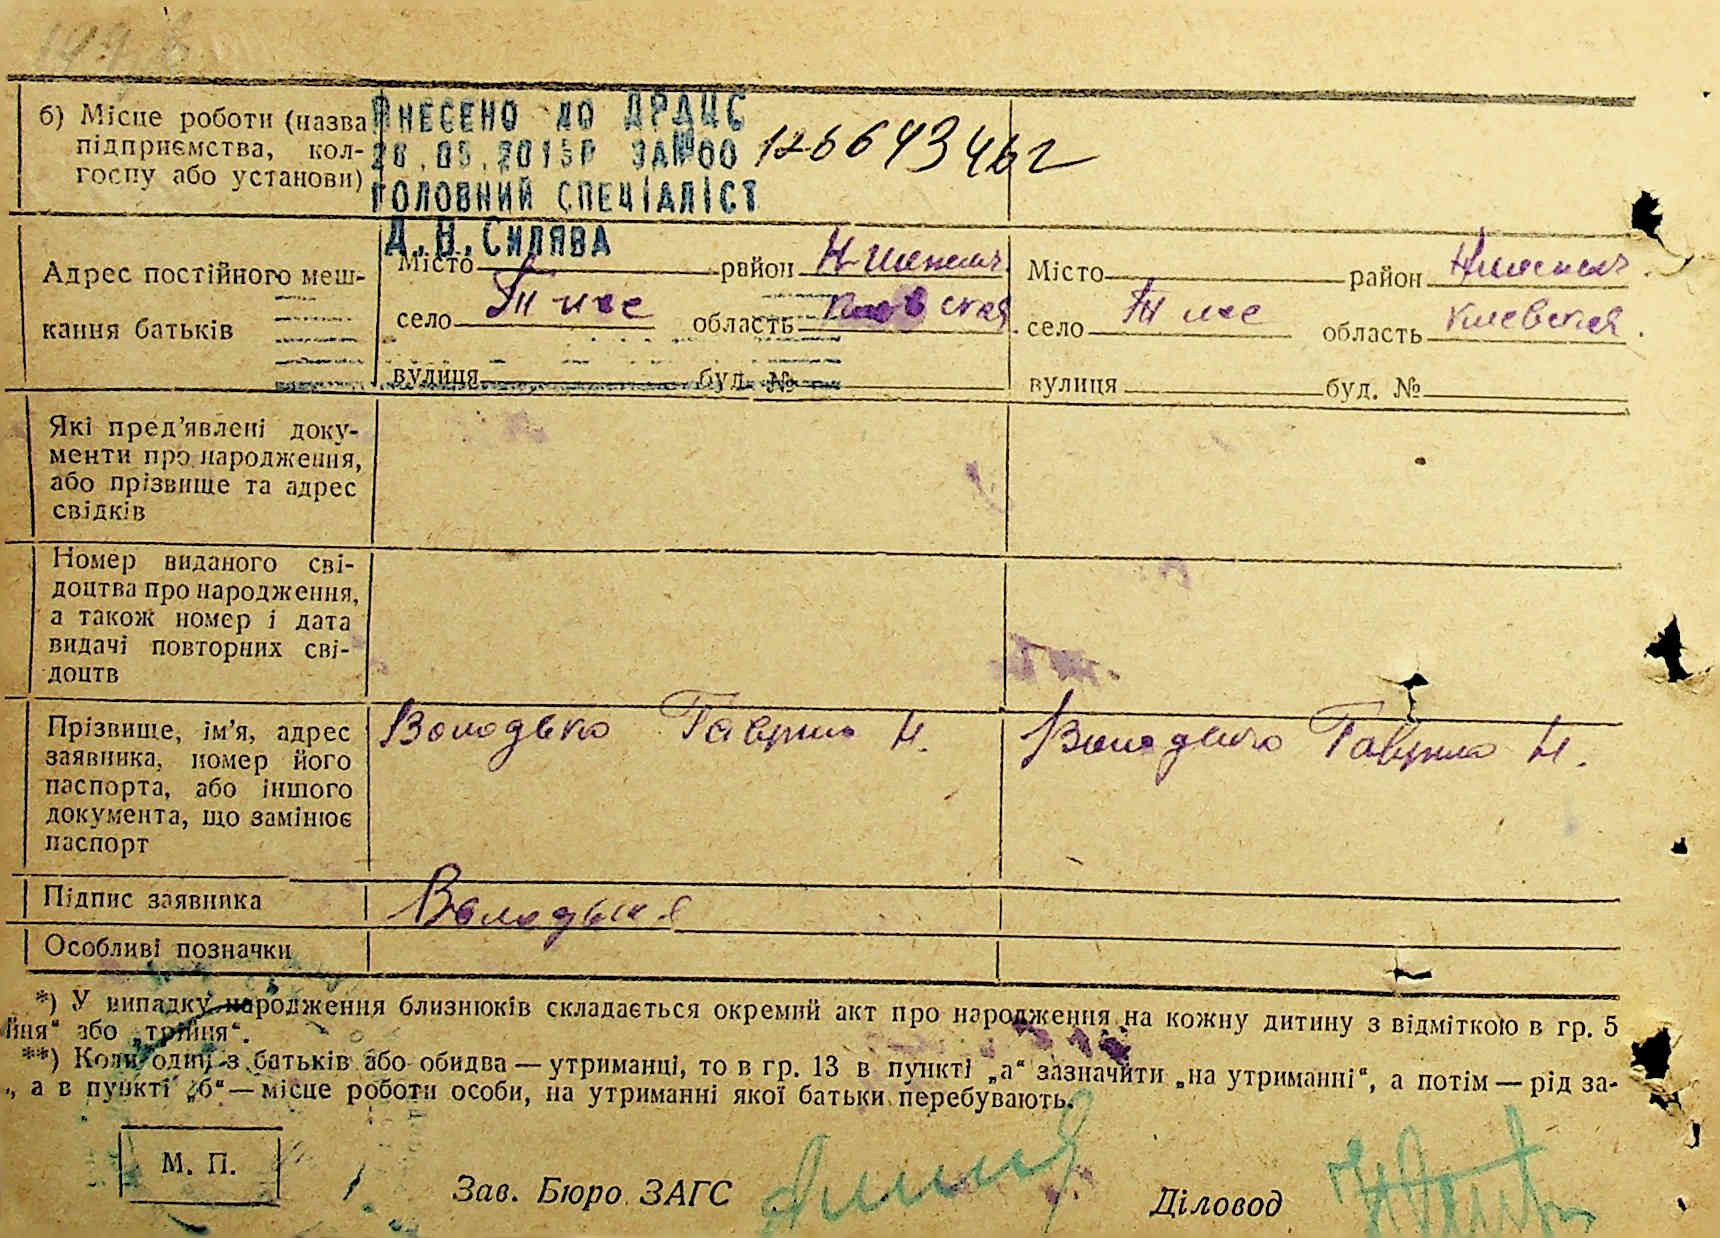 б) Місце роботи (назва
підприємства, кол-
госпу або установи)
ВНЕСЕНО ДО ДРАЦС
28.05.2015Р ЗА№00 12664346 2
ГОЛОВНИЙ СПЕЦІАЛІСТ
Д.В.СИЛЯВА
Адрес постійного меш-
кання батьків
Місто район
село область Киевская
вулиця буд. №
Місто район
село область Киевская.
вулиця буд. №
Які пред'явлені доку-
менти про народження,
або прізвище та адрес
свідків
Номер виданого сві-
доцтва про народження,
а також номер і дата
видачі повторних сві-
доцтв
Прізвище, ім'я, адрес
заявника, номер його
паспорта, або іншого
документа, що замінює
паспорт
Володько Гаврило Н.
Володько Гаврило Н.
Підпис заявника
Особливі позначки
*) У випадку народження близнюків складається окремий акт про народження на кожну дитину з відміткою в гр. 5
йня" або „трійня".
**) Коли один з батьків або обидва — утриманці, то в гр. 13 в пункті „а" зазначити „на утриманні", а потім — рід за-
„, а в пункті „б" — місце роботи особи, на утриманні якої батьки перебувають.
М. П.
Зав. Бюро ЗАГС
Діловод